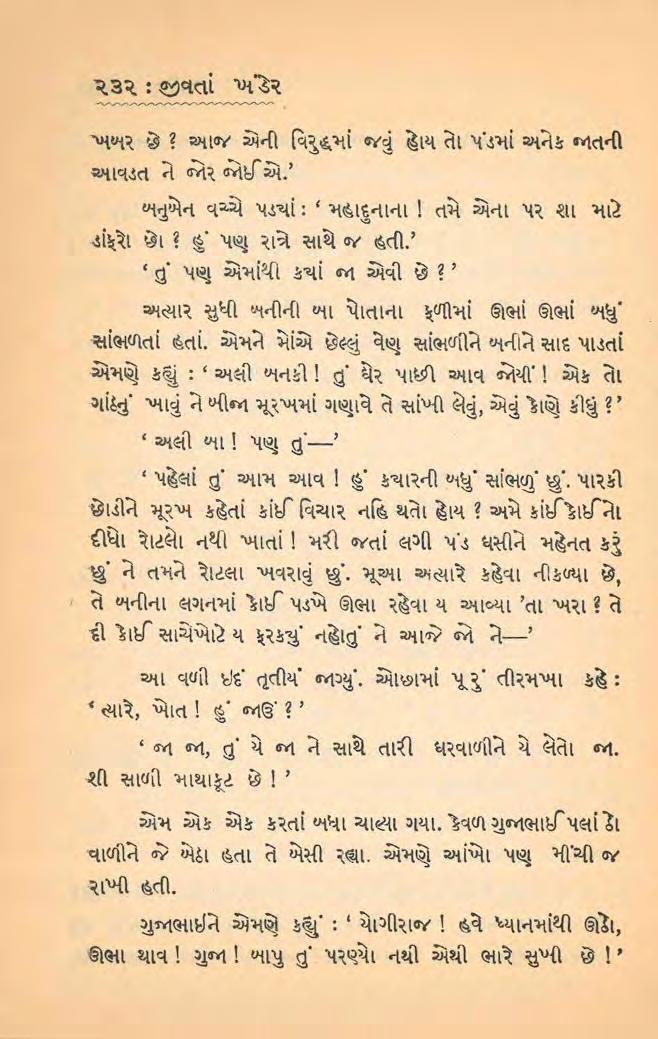 ૨૩૨ : જીવતાં ખંડેર
ખબર છે ? આજ એની વિરુદ્ધમાં જવું હોય તો પંડમાં અનેક જાતની
આવડત ને જોર જોઈએ.’
બનુબેન વચ્ચે પડ્યાં : ‘ મહાદુનાના ! તમે એના પર શા માટે
ડાંફરો છો ? હું પણ રાત્રે સાથે જ હતી.’
‘ તું પણ એમાંથી ક્યાં જા એવી છે ? ’
અત્યાર સુધી બનીની બા પોતાના ફળીમાં ઊભાં ઊભાં બધું
સાંભળતાં હતાં. એમને મોંએ છેલ્લું વેણ સાંભળીને બનીને સાદ પાડતાં
એમણે કહ્યું : ‘ અલી બનકી ! તું ઘેર પાછી આવ જોયીં ! એક તો
ગાંઠનું ખાવું ને બીજા મૂરખમાં ગણાવે તે સાંખી લેવું, એવું કોણે કીધું ? ’
‘ અલી બા ! પણ તું—’
‘ પહેલાં તું આમ આવ ! હું ક્યારની બધું સાંભળું છું. પારકી
છોડીને મૂરખ કહેતાં કાંઈ વિચાર નહિ થતો હોય ? અમે કાંઈ કોઈનો
દીધો રોટલો નથી ખાતાં ! મરી જતાં લગી પંડ ઘસીને મહેનત કરું
છું ને તમને રોટલા ખવરાવું છું. મૂઆ અત્યારે કહેવા નીકળ્યા છે,
તે બનીના લગનમાં કોઈ પડખે ઊભા રહેવા ય આવ્યા ’તા ખરા ? તે
દી કોઈ સાચેખોટે ય ફરક્યું નહોતું ને આજે જો ને—’
આ વળી ઇદં તૃતીયં જાગ્યું. ઓછામાં પૂરું તીરમખા કહે :
‘ ત્યારે, ખોત ! હું જાઉં ? ’
‘ જા જા, તું યે જા ને સાથે તારી ઘરવાળીને યે લેતો જા.
શી સાળી માથાકૂટ છે ! ’
એમ એક એક કરતાં બધા ચાલ્યા ગયા. કેવળ ગુજાભાઈ પલાંઠો
વાળીને જે બેઠા હતા તે બેસી રહ્યા. એમણે આંખો પણ મીંચી જ
રાખી હતી.
ગુજાભાઈને એમણે કહ્યું : ‘ યોગીરાજ ! હવે ધ્યાનમાંથી ઊઠો,
ઊભા થાવ ! ગુજા ! બાપુ તું પરણ્યો નથી એથી ભારે સુખી છે ! ’